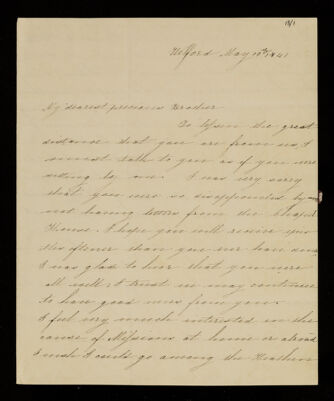 Helford May 19th 1841
My dearest precious Brother
To lessen the great
distance that you are from us I
must talk to you as if you were
sitting by me. I was very sorry
that you were so disappointed by
not having letters from the
I hope you will receive
oftener than you
I was glad to hear that you were
all well & I trust we may continue
to have good news from you.
I feel very much interested in the
cause of Missions at home or abroad
I wish I could go among the Heathen